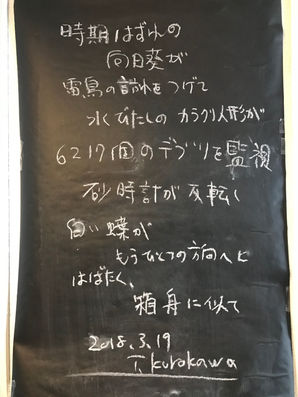 時期はずれの
向日葵が
雷鳥の訪れをつげて
水びたしのカラクリ人形が
6217個のデブリを監視
砂時計が反転し
白い蝶が
もうひとつの方向へと
はばたく、
箱舟に似て
2018.3.19
T.kurokawa